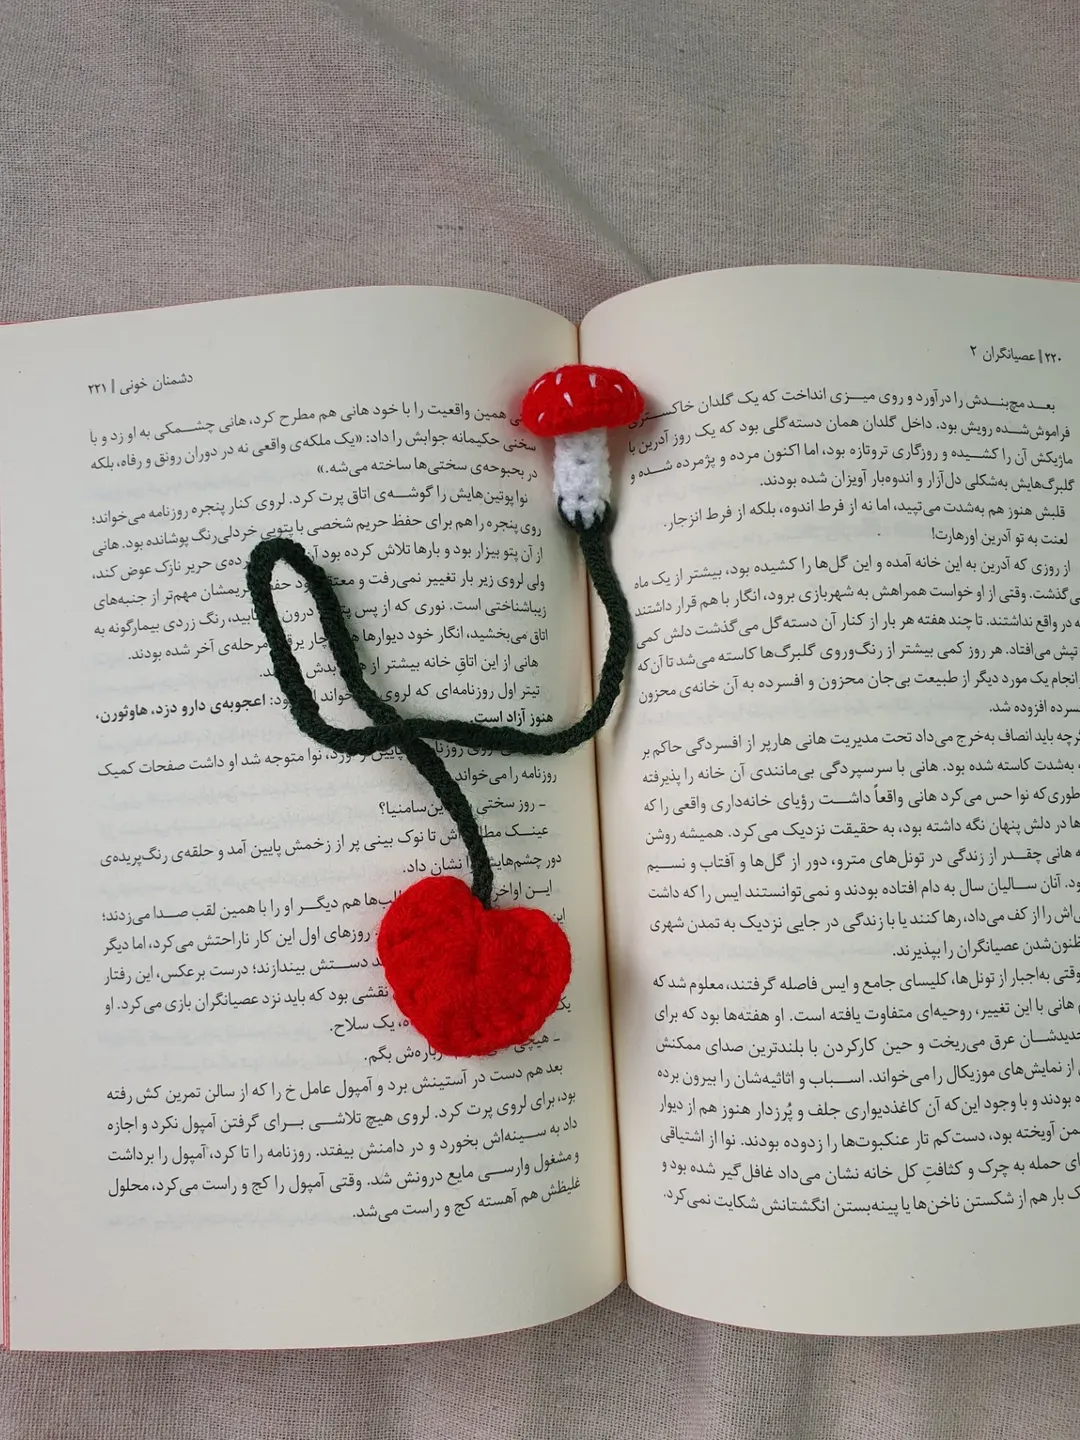 ۲۲۰ || عصیانگران ۲
بعد مچ‌بندش را درآورد و روی میزی انداخت که یک گلدان خاکستری
فراموش‌شده رویش بود. داخل گلدان همان دسته‌گلی بود که یک روز آدرین با
ماژیکش آن را کشیده و روزگاری تروتازه بود، اما اکنون مرده و پژمرده شده و
گلبرگ‌هایش به‌شکلی دل‌آزار و اندوه‌بار آویزان شده بودند.
قلبش هنوز هم به‌شدت می‌تپید، اما نه از فرط اندوه، بلکه از فرط انزجار.
لعنت به تو آدرین اورهارت!
از روزی که آدرین به این خانه آمده و این گل‌ها را کشیده بود، بیشتر از یک ماه
می‌گذشت. وقتی از او خواست همراهش به شهربازی برود، انگار با هم قرار داشتند
در واقع نداشتند. تا چند هفته هر بار از کنار آن دسته‌گل می‌گذشت دلش کمی
تپش می‌افتاد. هر روز کمی بیشتر از رنگ‌وروی گلبرگ‌ها کاسته می‌شد تا آن‌که
انجام یک مورد دیگر از طبیعت بی‌جان محزون و افسرده به آن خانه‌ی محزون
افزوده شد.
باید انصاف به‌خرج می‌داد تحت مدیریت هانی هارپر از افسردگی حاکم بر
به‌شدت کاسته شده بود. هانی با سرسپردگی بی‌مانندی آن خانه را پذیرفته
که نوا حس می‌کرد هانی واقعاً داشت رؤیای خانه‌داری واقعی را که
در دلش پنهان نگه داشته بود، به حقیقت نزدیک می‌کرد. همیشه روشن
هانی چقدر از زندگی در تونل‌های مترو، دور از گل‌ها و آفتاب و نسیم
آنان سالیان سال به دام افتاده بودند و نمی‌توانستند ایس را که داشت
را از کف می‌داد، رها کنند یا با زندگی در جایی نزدیک به تمدن شهری
عصیانگران را بپذیرند.
وقتی به‌اجبار از تونل‌ها، کلیسای جامع و ایس فاصله گرفتند، معلوم شد که
هانی با این تغییر، روحیه‌ای متفاوت یافته است. او هفته‌ها بود که برای
عرق می‌ریخت و حین کارکردن با بلندترین صدای ممکنش
از نمایش‌های موزیکال را می‌خواند. اسباب و اثاثیه‌شان را بیرون برده
بودند و با وجود این‌که آن کاغذدیواری جلف و پُرزدار هنوز هم از دیوار
آویخته بود، دست‌کم تار عنکبوت‌ها را زدوده بودند. نوا از اشتیاقی
حمله به چرک و کثافتِ کل خانه نشان می‌داد غافل‌گیر شده بود و
بار هم از شکستن ناخن‌ها یا پینه‌بستن انگشتانش شکایت نمی‌کرد.
دشمنان خونی || ۲۲۱
همین واقعیت را با خود هانی هم مطرح کرد، هانی چشمکی به او زد و با
سخنی حکیمانه جوابش را داد: «یک ملکه‌ی واقعی نه در دوران رونق و رفاه، بلکه
در بحبوحه‌ی سختی‌ها ساخته می‌شه.»
نوا پوتین‌هایش را گوشه‌ی اتاق پرت کرد. لروی کنار پنجره روزنامه می‌خواند؛
روی پنجره را هم برای حفظ حریم شخصی با پتویی خردلی‌رنگ پوشانده بود. هانی
از آن پتو بیزار بود و بارها تلاش کرده بود حریر نازک عوض کند،
ولی لروی زیر بار تغییر نمی‌رفت و بود حریمشان مهم‌تر از جنبه‌های
زیباشناختی است. نوری که از پس درون رنگ زردی بیمارگونه به
اتاق می‌بخشید، انگار خود دیوارها مرحله‌ی آخر شده بودند.
هانی از این اتاقِ خانه بیشتر از بدش
تیتر اول روزنامه‌ای که لروی اعجوبه‌ی دارو دزد، هاوثورن،
هنوز آزاد است.
نوا متوجه شد او داشت صفحات کمیک
روزنامه را می‌خواند
- روز سختی
عینک تا نوک بینی پر از زخمش پایین آمد و حلقه‌ی رنگ‌پریده‌ی
دور چشم‌هایش نشان داد.
این هم دیگر او را با همین لقب صدا می‌زدند؛
روزهای اول این کار ناراحتش می‌کرد، اما دیگر
دستش بیندازند؛ درست برعکس، این رفتار
نقشی بود که باید نزد عصیانگران بازی می‌کرد. او
یک سلاح.
- هیچی بگم.
بعد هم دست در آستینش برد و آمپول عامل خ را که از سالن تمرین کش رفته
بود، برای لروی پرت کرد. لروی هیچ تلاشی برای گرفتن آمپول نکرد و اجازه
داد به سینه‌اش بخورد و در دامنش بیفتد. روزنامه را تا کرد، آمپول را برداشت
و مشغول وارسی مایع درونش شد. وقتی آمپول را کج و راست می‌کرد، محلول
غلیظش هم آهسته کج و راست می‌شد.